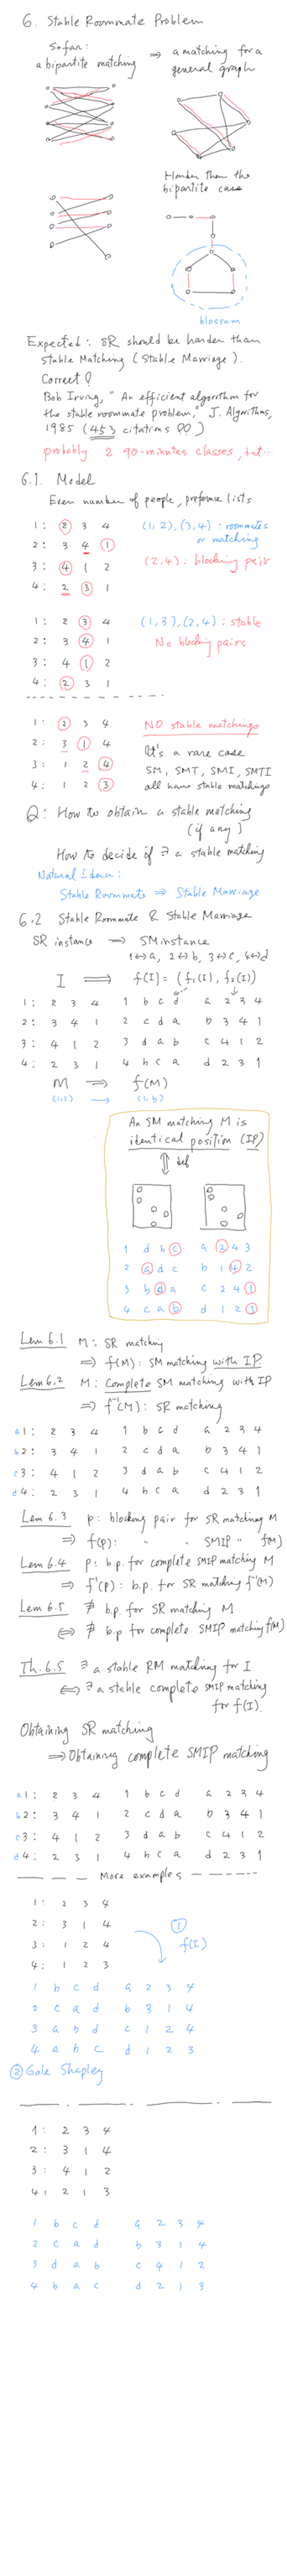 6. Stable Roommate Problem
So far:
a bipartite matching ⇒ a matching for a general graph
Harder than the
bipartite case
blossom
Expected: SR should be harder than
Stable Matching (Stable Marriage).
Correct?
Bob Irving, "An efficient algorithm for
the stable roommate problem," J. Algorithms,
1985 (453 citations !!)
probably 2 90-minutes classes, but...
6.1. Model
Even number of people, preference lists
1: 2 3 4 (1,2),(3,4): roommates
2: 3 4 1 or matching
3: 4 1 2 (2,4): blocking pair
4: 2 3 1
1: 2 3 4 (1,3),(2,4): stable
2: 3 4 1 No blocking pairs
3: 4 1 2
4: 2 3 1
1: 2 3 4 NO stable matchings
2: 3 1 4 It's a rare case
3: 1 2 4 SM, SMT, SMI, SMTI
4: 1 2 3 all have stable matchings
Q: How to obtain a stable matching
(if any)
How to decide if ∃ a stable matching
Natural Idea:
Stable Roommate ⇒ Stable Marriage
6.2 Stable Roommate & Stable Marriage
SR instance ⇒ SM instance
1↔a, 2↔b, 3↔c, 4↔d
I ⇒ f(I) = (f₁(I), f₂(I))
1: 2 3 4 1 b c d a 2 3 4
2: 3 4 1 2 c d a b 3 4 1
3: 4 1 2 3 d a b c 4 1 2
4: 2 3 1 4 b c a d 2 3 1
M ⇒ f(M)
(1,2) → (1,b)
An SM matching M is
identical position (IP)
⇕ def
1 d b c a 2 4 3
2 a d c b 1 4 2
3 b d a c 2 4 1
4 c a b d 1 2 3
Lem 6.1 M: SR matching
⇒ f(M): SM matching with IP
Lem 6.2 M: Complete SM matching with IP
⇒ f⁻¹(M): SR matching
a1: 2 3 4 1 b c d a 2 3 4
b2: 3 4 1 2 c d a b 3 4 1
c3: 4 1 2 3 d a b c 4 1 2
d4: 2 3 1 4 b c a d 2 3 1
Lem 6.3 p: blocking pair for SR matching M
⇒ f(p): " " SMIP " f(M)
Lem 6.4 p: b.p. for complete SMIP matching M
⇒ f⁻¹(p): b.p. for SR matching f⁻¹(M)
Lem 6.5 ∄ b.p. for SR matching M
⇔ ∄ b.p for complete SMIP matching f(M)
Th.6.5 ∃ a stable RM matching for I
⇔ ∃ a stable complete SMIP matching
for f(I).
Obtaining SR matching
⇒ Obtaining complete SMIP matching
a1: 2 3 4 1 b c d a 2 3 4
b2: 3 4 1 2 c d a b 3 4 1
c3: 4 1 2 3 d a b c 4 1 2
d4: 2 3 1 4 b c a d 2 3 1
More examples
1: 2 3 4
2: 3 1 4 ①
3: 1 2 4 f(I)
4: 1 2 3
1 b c d a 2 3 4
2 c a d b 3 1 4
3 a b d c 1 2 4
4 a b c d 1 2 3
② Gale Shapley
1: 2 3 4
2: 3 1 4
3: 4 1 2
4: 2 1 3
1 b c d a 2 3 4
2 c a d b 3 1 4
3 d a b c 4 1 2
4 b a c d 2 1 3